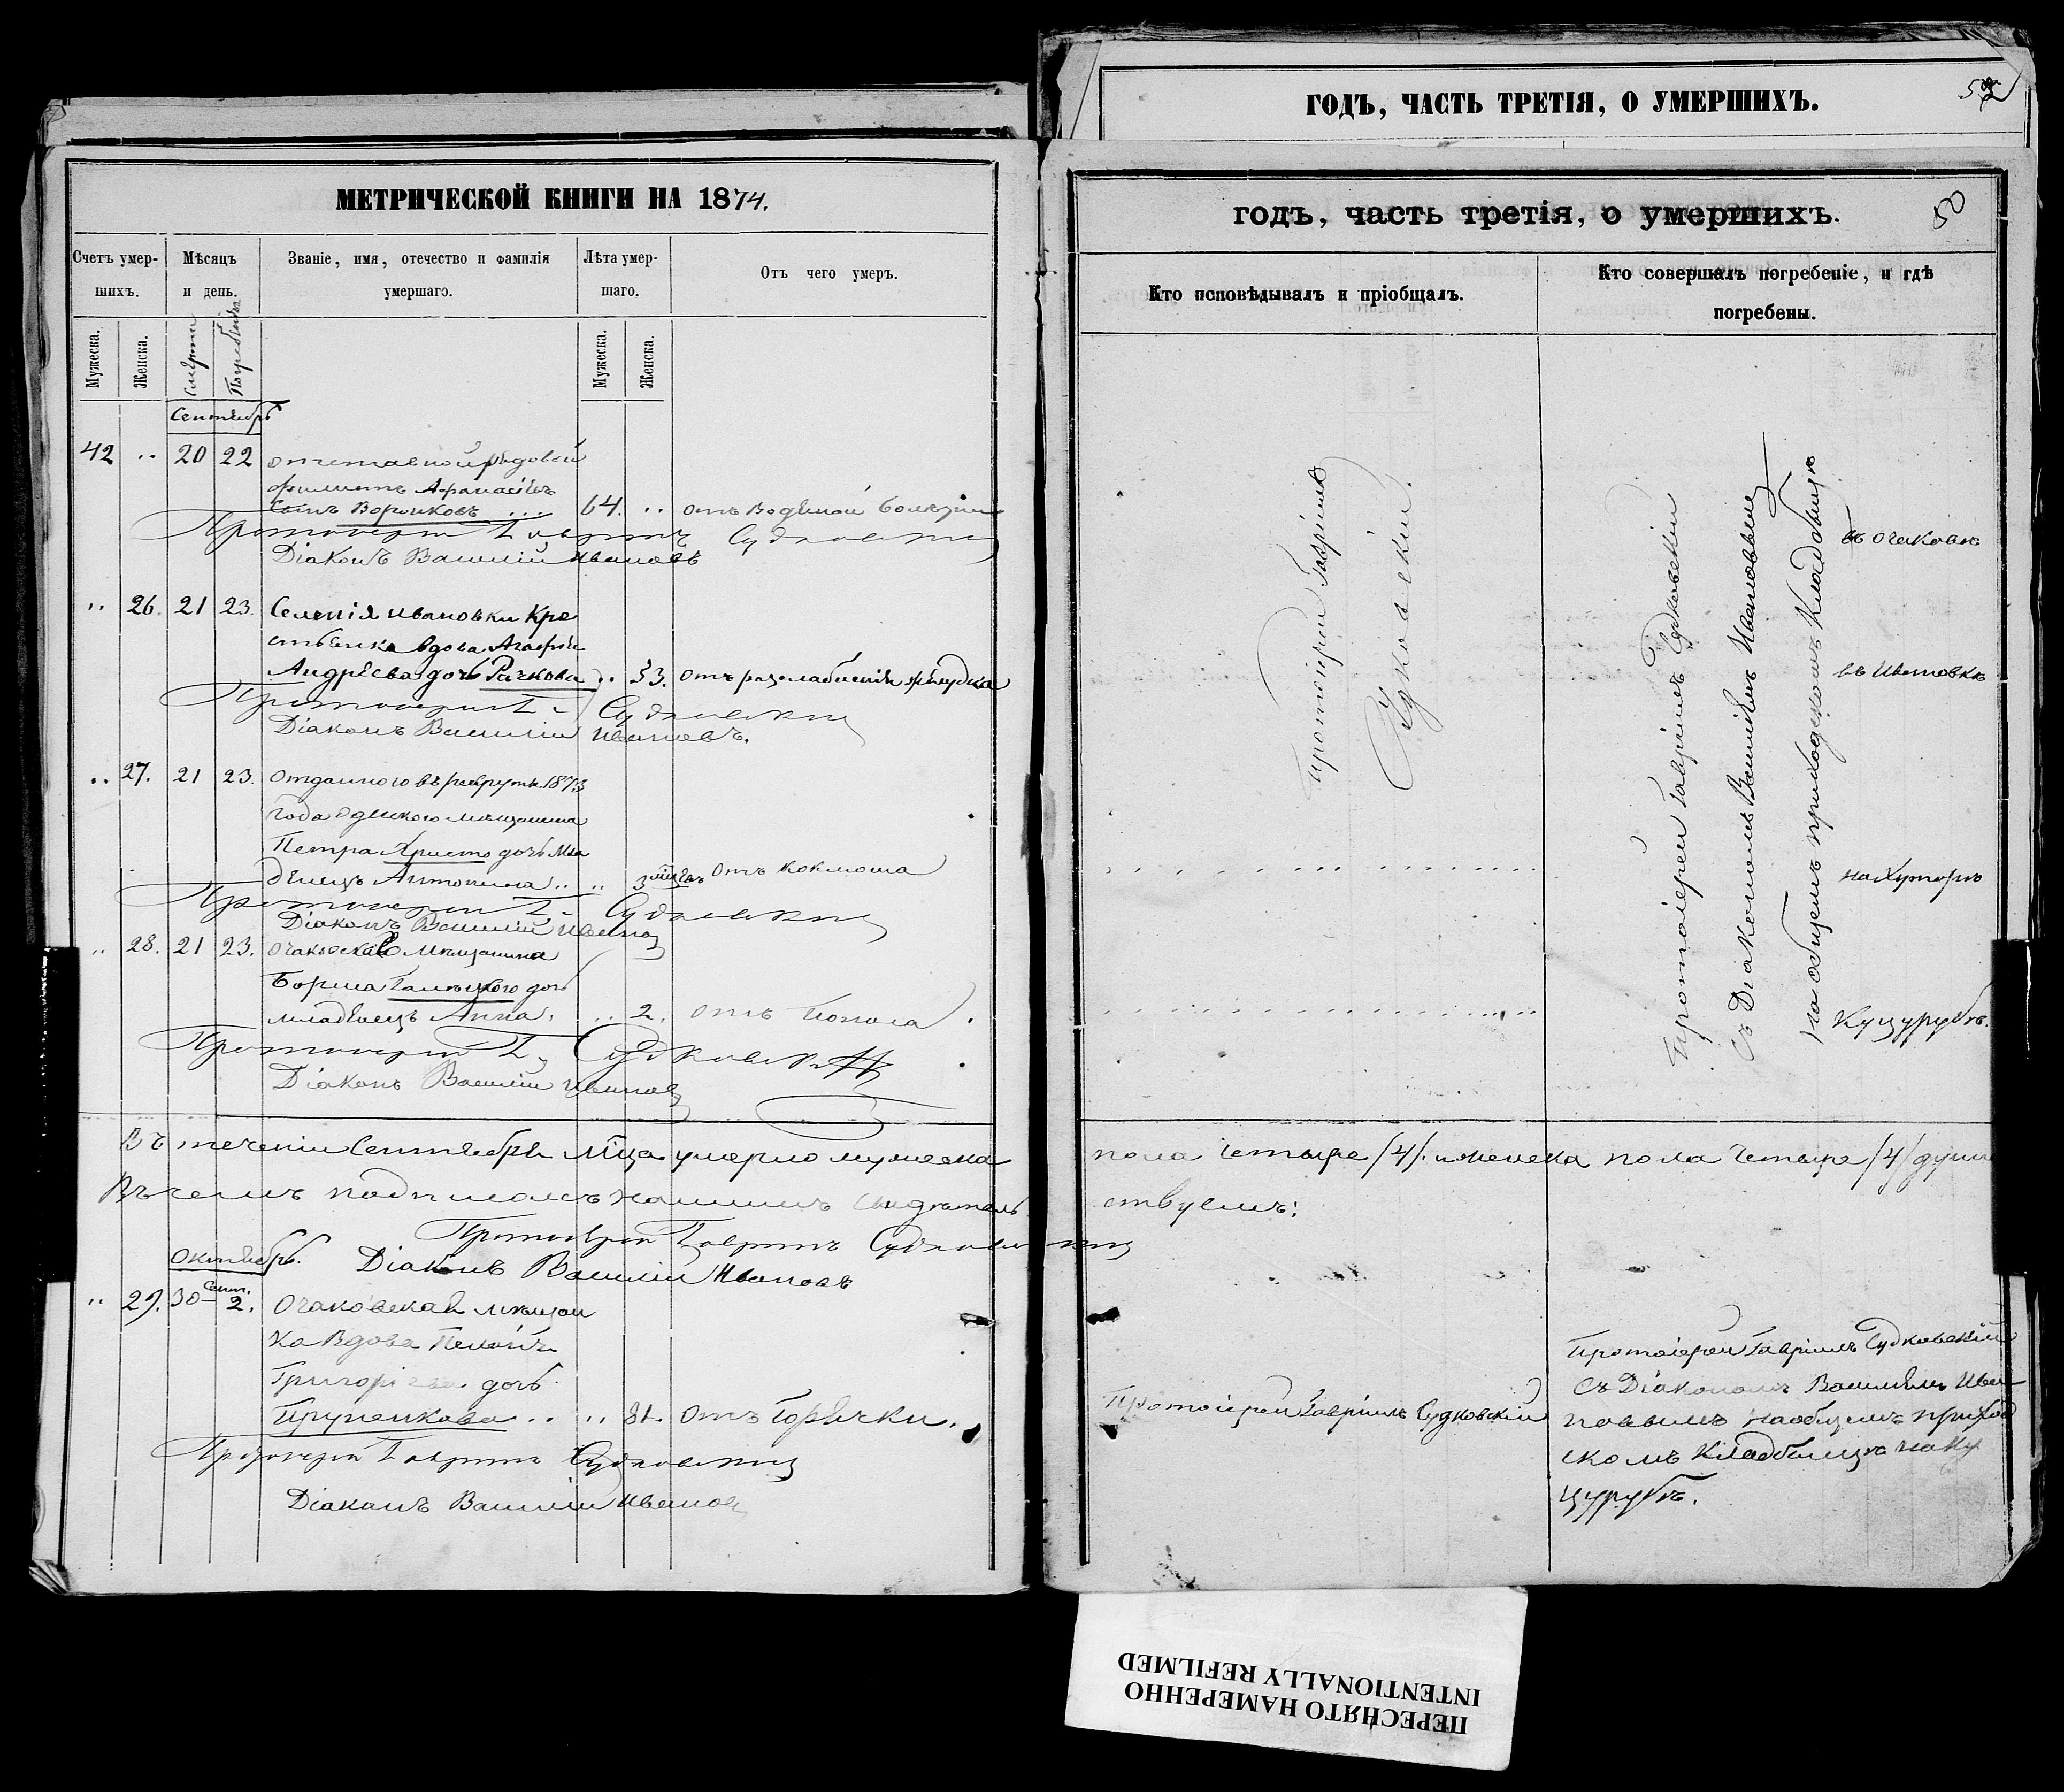 МЕТРИЧЕСКОЙ КНИГИ НА 1874.
Счетъ умер-
шихъ.
Мѣсяцъ
и день.
Званіе, имя, отечество и фамилія
умершаго.
Лѣта умер-
шаго.
Отъ чего умеръ.
Мужеска.
Женска.
Смерти
Погребенія
Мужеска.
Женска.
Сентябрь
42 .. 20 22 отставной рядовой
Филиппъ Афанасіевъ
сынъ Воронковъ ... 64. .. отъ водяной болезни
Протоіерей Гавріилъ Судковскій
Діаконъ Василій Ивановъ
.. 26. 21 23. Селенія Ивановки Кре
стьянка вдова Агафія
Андреева дочь Рачкова .. 53. отъ разслабленія желудка
Протоіерей Г. Судковскій
Діаконъ Василій Ивановъ.
.. 27. 21 23. Отданного въ рекруты 1873
года Одеского мещанина
Петра Христо дочь Мла
денецъ Антонина .. .. 3 мцъ отъ коклюша
Протоіерей Г. Судковскій
Діаконъ Василій Иванов
.. 28. 21 23. Очаковскаго Мещанина
Бориса дочь
младенецъ Анна. .. 2. отъ Поноса.
Протоіерей Г. Судковскій
Діаконъ Василій Иванов
Въ теченіи Сентября М-ца умерло мужеска
Въ чемъ подписомъ нашимъ свидетель
Протоіерей Гавріилъ Судковскій
Октябрь. Діаконъ Василій Ивановъ
.. 29. 30 Сент. 2. Очаковская мещан
ка Вдова
Григоріева дочь
Прупенкова .. .. 81. отъ Горячки.
Протоіерей Гавріилъ Судковскій
Діаконъ Василій Иванов
ГОДЪ, ЧАСТЬ ТРЕТІЯ, О УМЕРШИХЪ.
52
годъ, часть третія, о умершихъ.
50
Кто исповѣдывалъ и пріобщалъ.
Кто совершалъ погребеніе, и гдѣ
погребены.
Протоіерей Гавріилъ
Судковскій.
Протоіерей Гавріилъ Судковскій
съ Діакономъ Василіемъ Ивановымъ
на общемъ приходскомъ Кладбище
въ Очакове
въ Ивановке
на Хуторе
Куцурубе.
пола четыре /4/. и женска пола четыре /4/ душ
ствуемъ:
Протоіерей Гавріилъ Судковскій
Протоіерей Гавріилъ Судковскій
съ Діакономъ Василіемъ Ива
новымъ на общемъ приход
скомъ Кладбище на Ку
цурубе.
ПЕРЕСНЯТО НАМЕРЕННО
INTENTIONALLY REFILMED